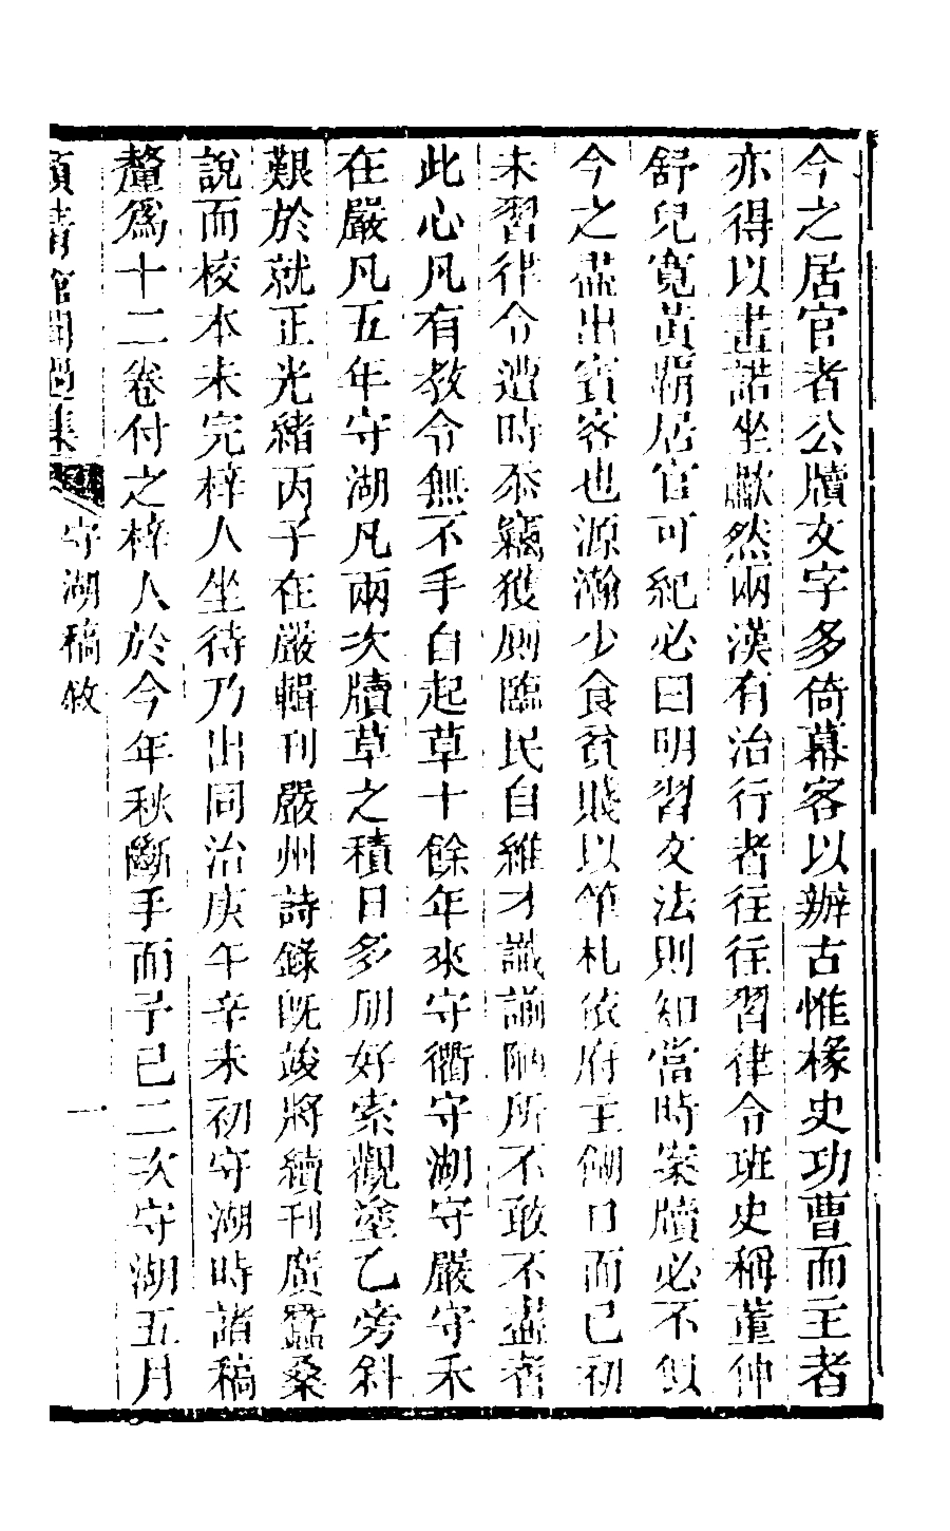 今之居官者公牘文字多倚幕客以辦古惟椽史功曹而主者
亦得以畫諾坐歗然兩漢有治行者往往習律令班史稱董仲
舒兒寬黃霸居官可紀必曰明習文法則知當時案牘必不似
今之盡出賓客也源瀚少食貧賤以筆札依府主餬口而已初
未習律令遭時忝竊獲厠臨民自維才識謭陋所不敢不盡者
此心凡有教令無不手自起草十餘年來守衢守湖守嚴守禾
在嚴凡五年守湖凡兩次牘草之積日多朋好索觀塗乙旁斜
艱於就正光緒丙子在嚴輯刊嚴州詩錄旣竣將續刊廣蠶桑
說而校本未完梓人坐待乃出同治庚午辛未初守湖時諸稿
釐爲十二卷付之梓人於今年秋斷手而予已二次守湖五月
頻情館聞過集 守湖稿敘 一